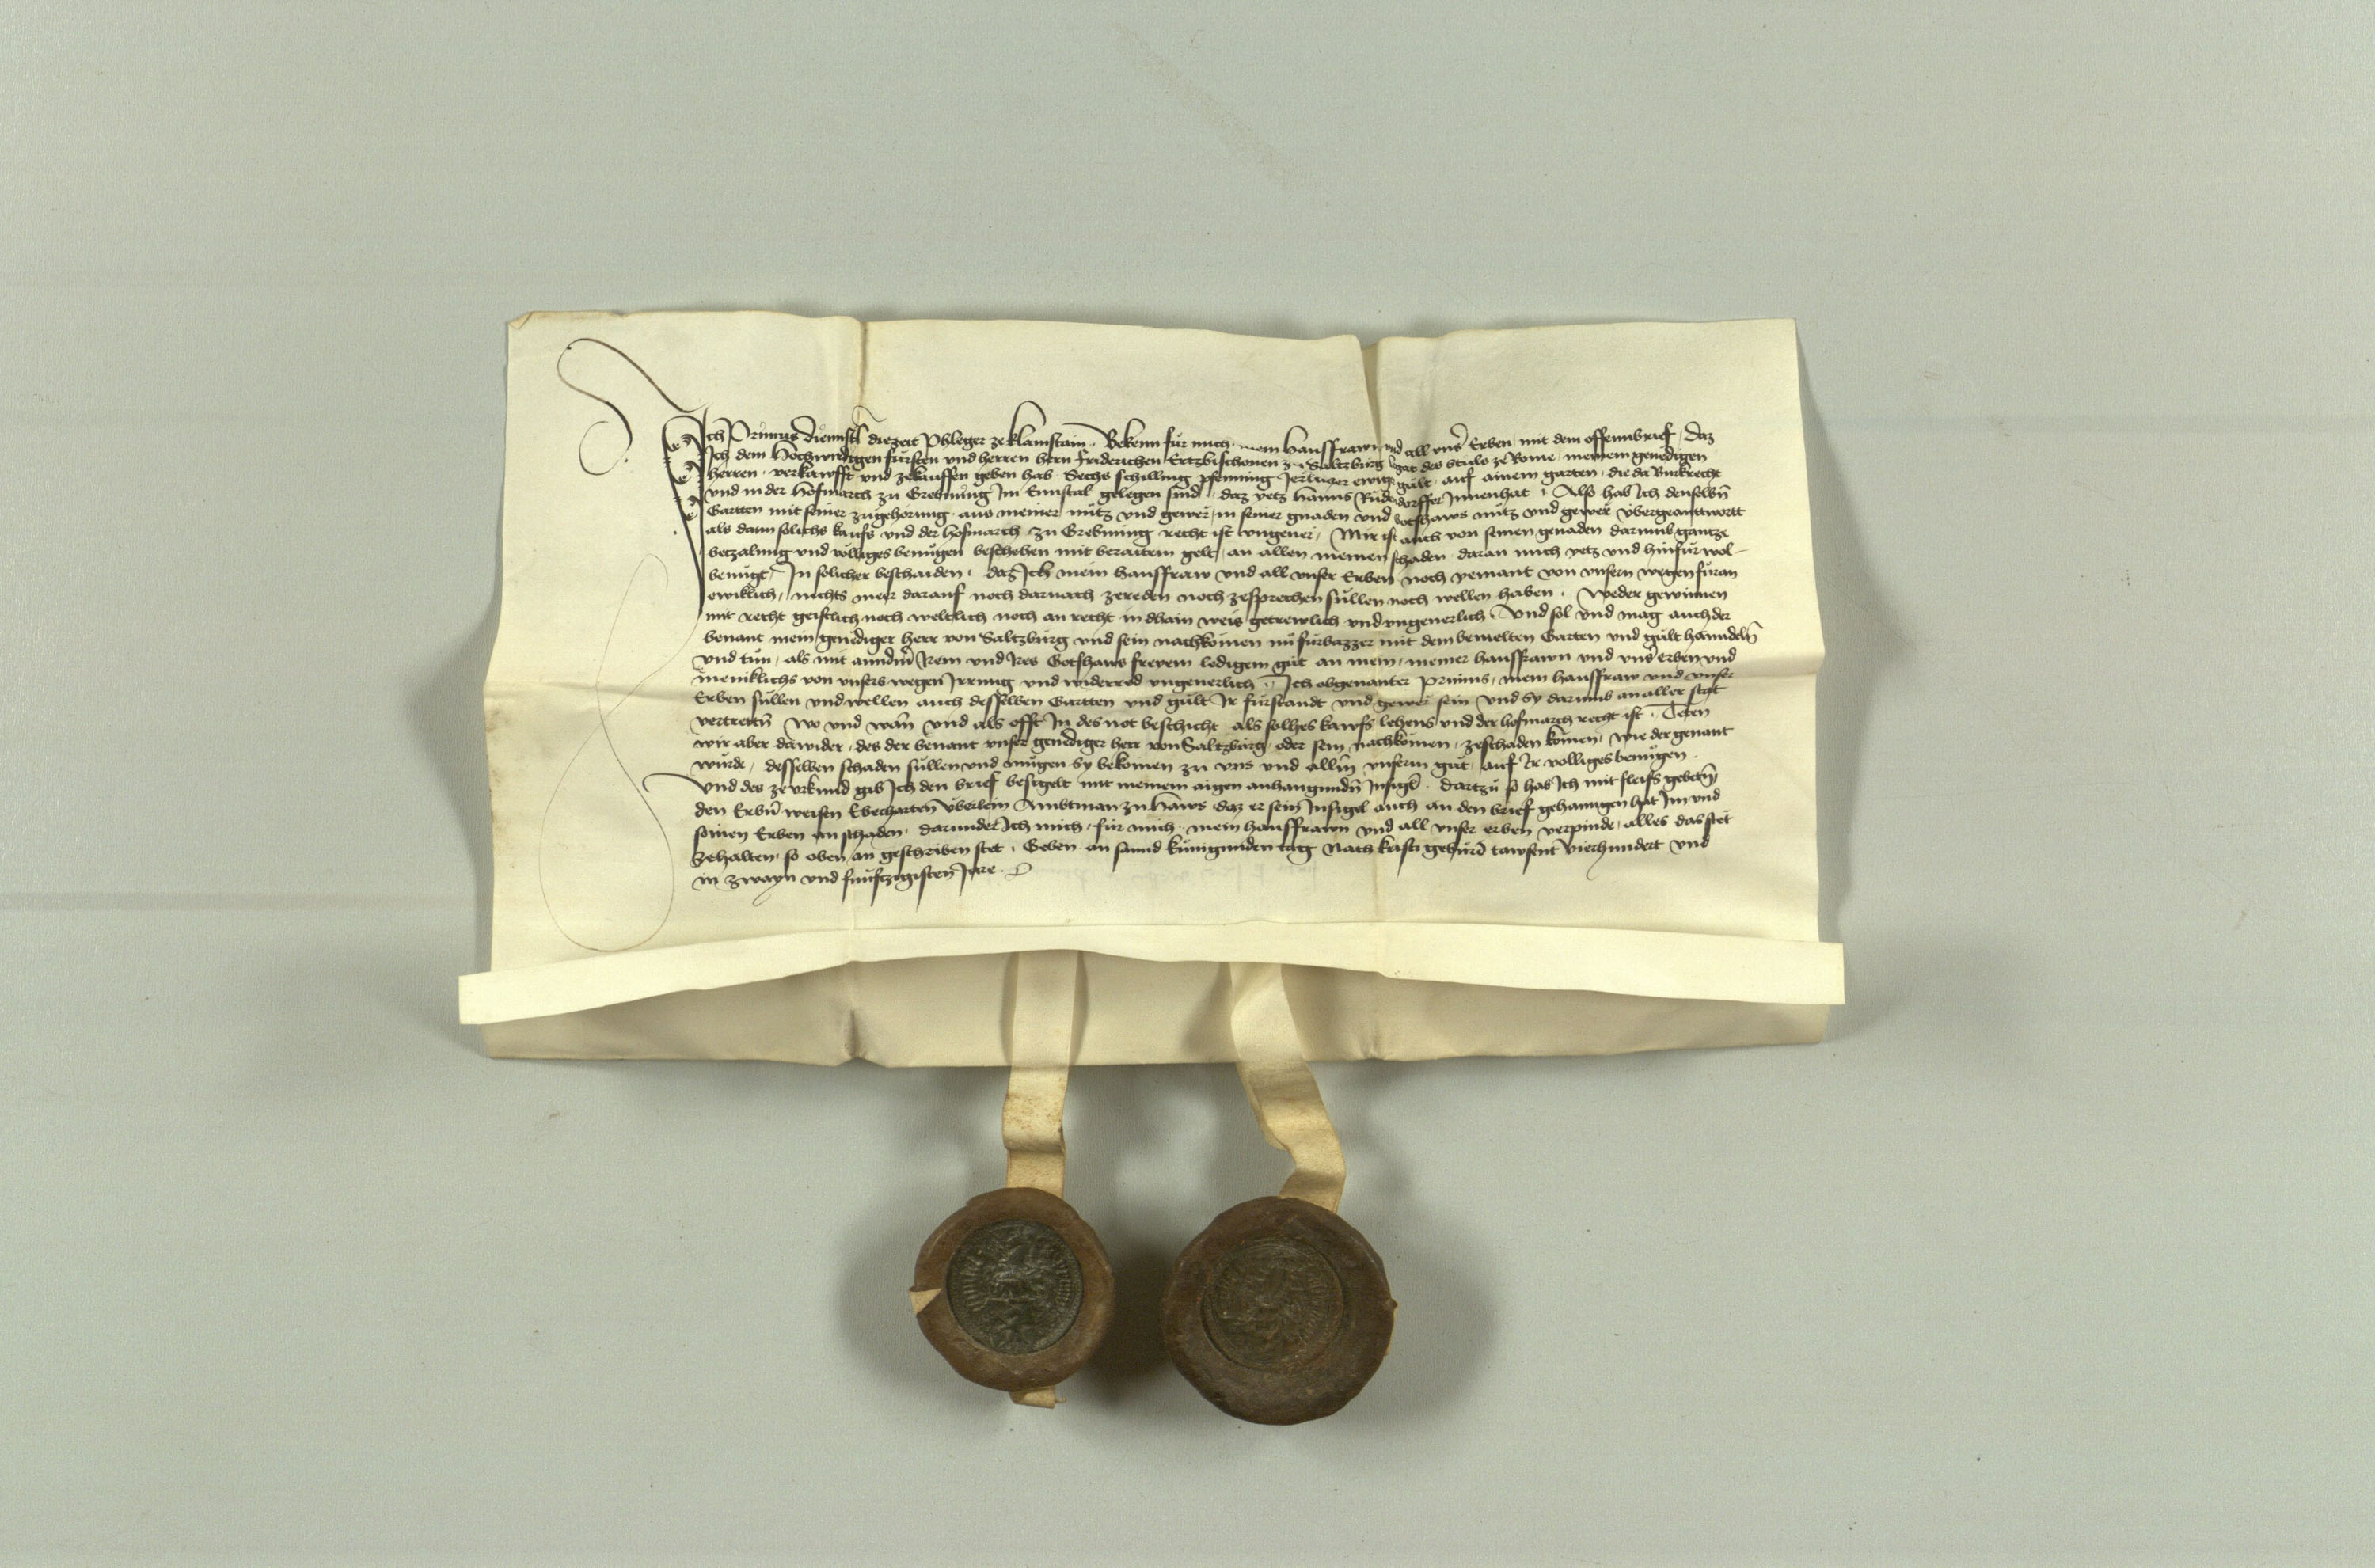 Ich Primus Diemstl diezeit Phleger ze Klamstain. Bekenn für mich mein hausfrawn und all uns̄ Erben mit dem offennbrief, daz
Ich dem Hochwirdigen fürsten und herren hern Friderichen Ertzbischouen zu Saltzburg legat des Stuls ze Rome, meinem genedigen
herren, verkawfft und zekauffen geben hab Sechs schilling pfenning Jerlicher ewiger gült, auf ainem garten, die da Burkrecht
und in der Hofmarch zu Grebming Im Ennstal gelegen sind, daz yetz Hanns Rüdendorffer Innenhat, Also hab Ich denselbn̄
Gartten mit seiner zugehorung, aus meiner nütz und gewer, in seiner gnaden und Gotshaws nütz und gewer übergeanttwortt
als dann solichs kaufs und der hofmarch zu Grebming recht ist ungeuer, Mir ist auch von seinen genaden darumb gantze
betzalung und völliges benügen beschehen mit beraitem gelt, an allen meinen schaden, daran mich yetz und hinfür wol
benügt, In solicher beschaiden, daz Ich mein hausfraw und all unser Erben noch yemant von unsern wegen füran
ewiklich, nichts mer darauf noch darnach zereden noch zesprechen süllen noch wellen haben, Weder gewinnen
mit recht geistlich noch weltlich noch an recht in dhain weis getrewlich und ungeuerlich, Und sol und mag auch der
benant mein genediger herr von Saltzburg und sein nachkomen nu fürbazzer mit dem bemelten Garten und gült hanndeln̄
und tün, als mit anndm̄ Irem und Ires Gotshaws freyem ledigem güt an mein, meiner hausfrawn und uns̄ erben und
meniklichs von unsers wegen Irrung und widerred ungeuerlich, Ich obgenanter Primus, mein hausfraw und unser
Erben süllen und wellen auch desselben Gartten und gült Ir fürstandt und gewer sein und sy darumb an aller stat
vertrettn̄ wo und wann̄ und als offt In des not beschicht als solhes kawfs lehens und der hofmarch recht ist, Teten
wir aber dawider, des der benant unser genediger herr von Saltzburg, oder sein nachkomen, zeschaden komen, wie der genant
würde, desselben schaden süllen und mügen sy bekomen zu uns und allm̄ unserm güt, auf Ir volliges benügen.
Und des ze urkund gib Ich den brief besigelt mit meinem aigen anhangundn̄ Insigl, Dartzu so hab Ich mit fleiss gebetn̄
den Erbn̄ weisen Eberhartten Überlein Ambtman zu Haws daz er sein Insigel auch an den brief gehanngen hat Im und
seinen Erben an schaden, darunder Ich mich, für mich, mein hausfrawn und all unser erben verpinde, alles das stet
zehalten, so oben an geschriben stet, Geben an sannd Kunigunden tag Nach kristi gebürd tawsent vierhundert und
in zwayn und funftzigisten Jare.